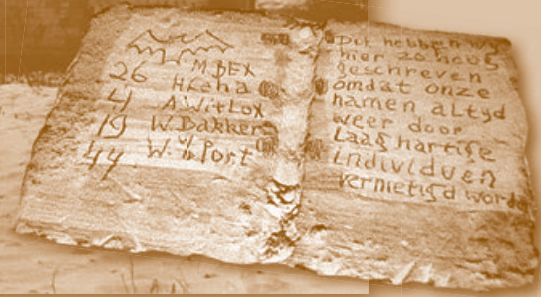 M.BEX
26 H.
4 A.WitLox
19 W.Bakker
44 W. Port
Dit hebben wy
hier zo hoog
geschreven
omdat onze
namen altyd
weer door
Laaghartige
individuen
vernietigd worde